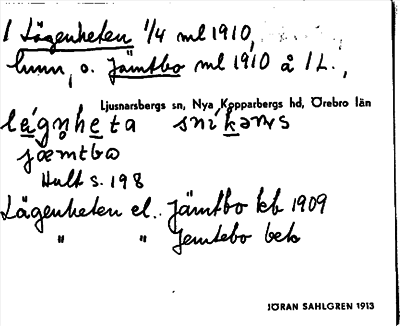 1 Lägenheten 1/4 ml 1910,
hmn, o. Jämtbo ml 1910 å 1 L.,
Ljusnarsbergs sn, Nya Kopparbergs hd, Örebro län
légnheta snikars
jæmtbo
Hult s. 198
Lägenheten el. Jämtbo kb 1909
" " Jemtebo bek
JÖRAN SAHLGREN 1913